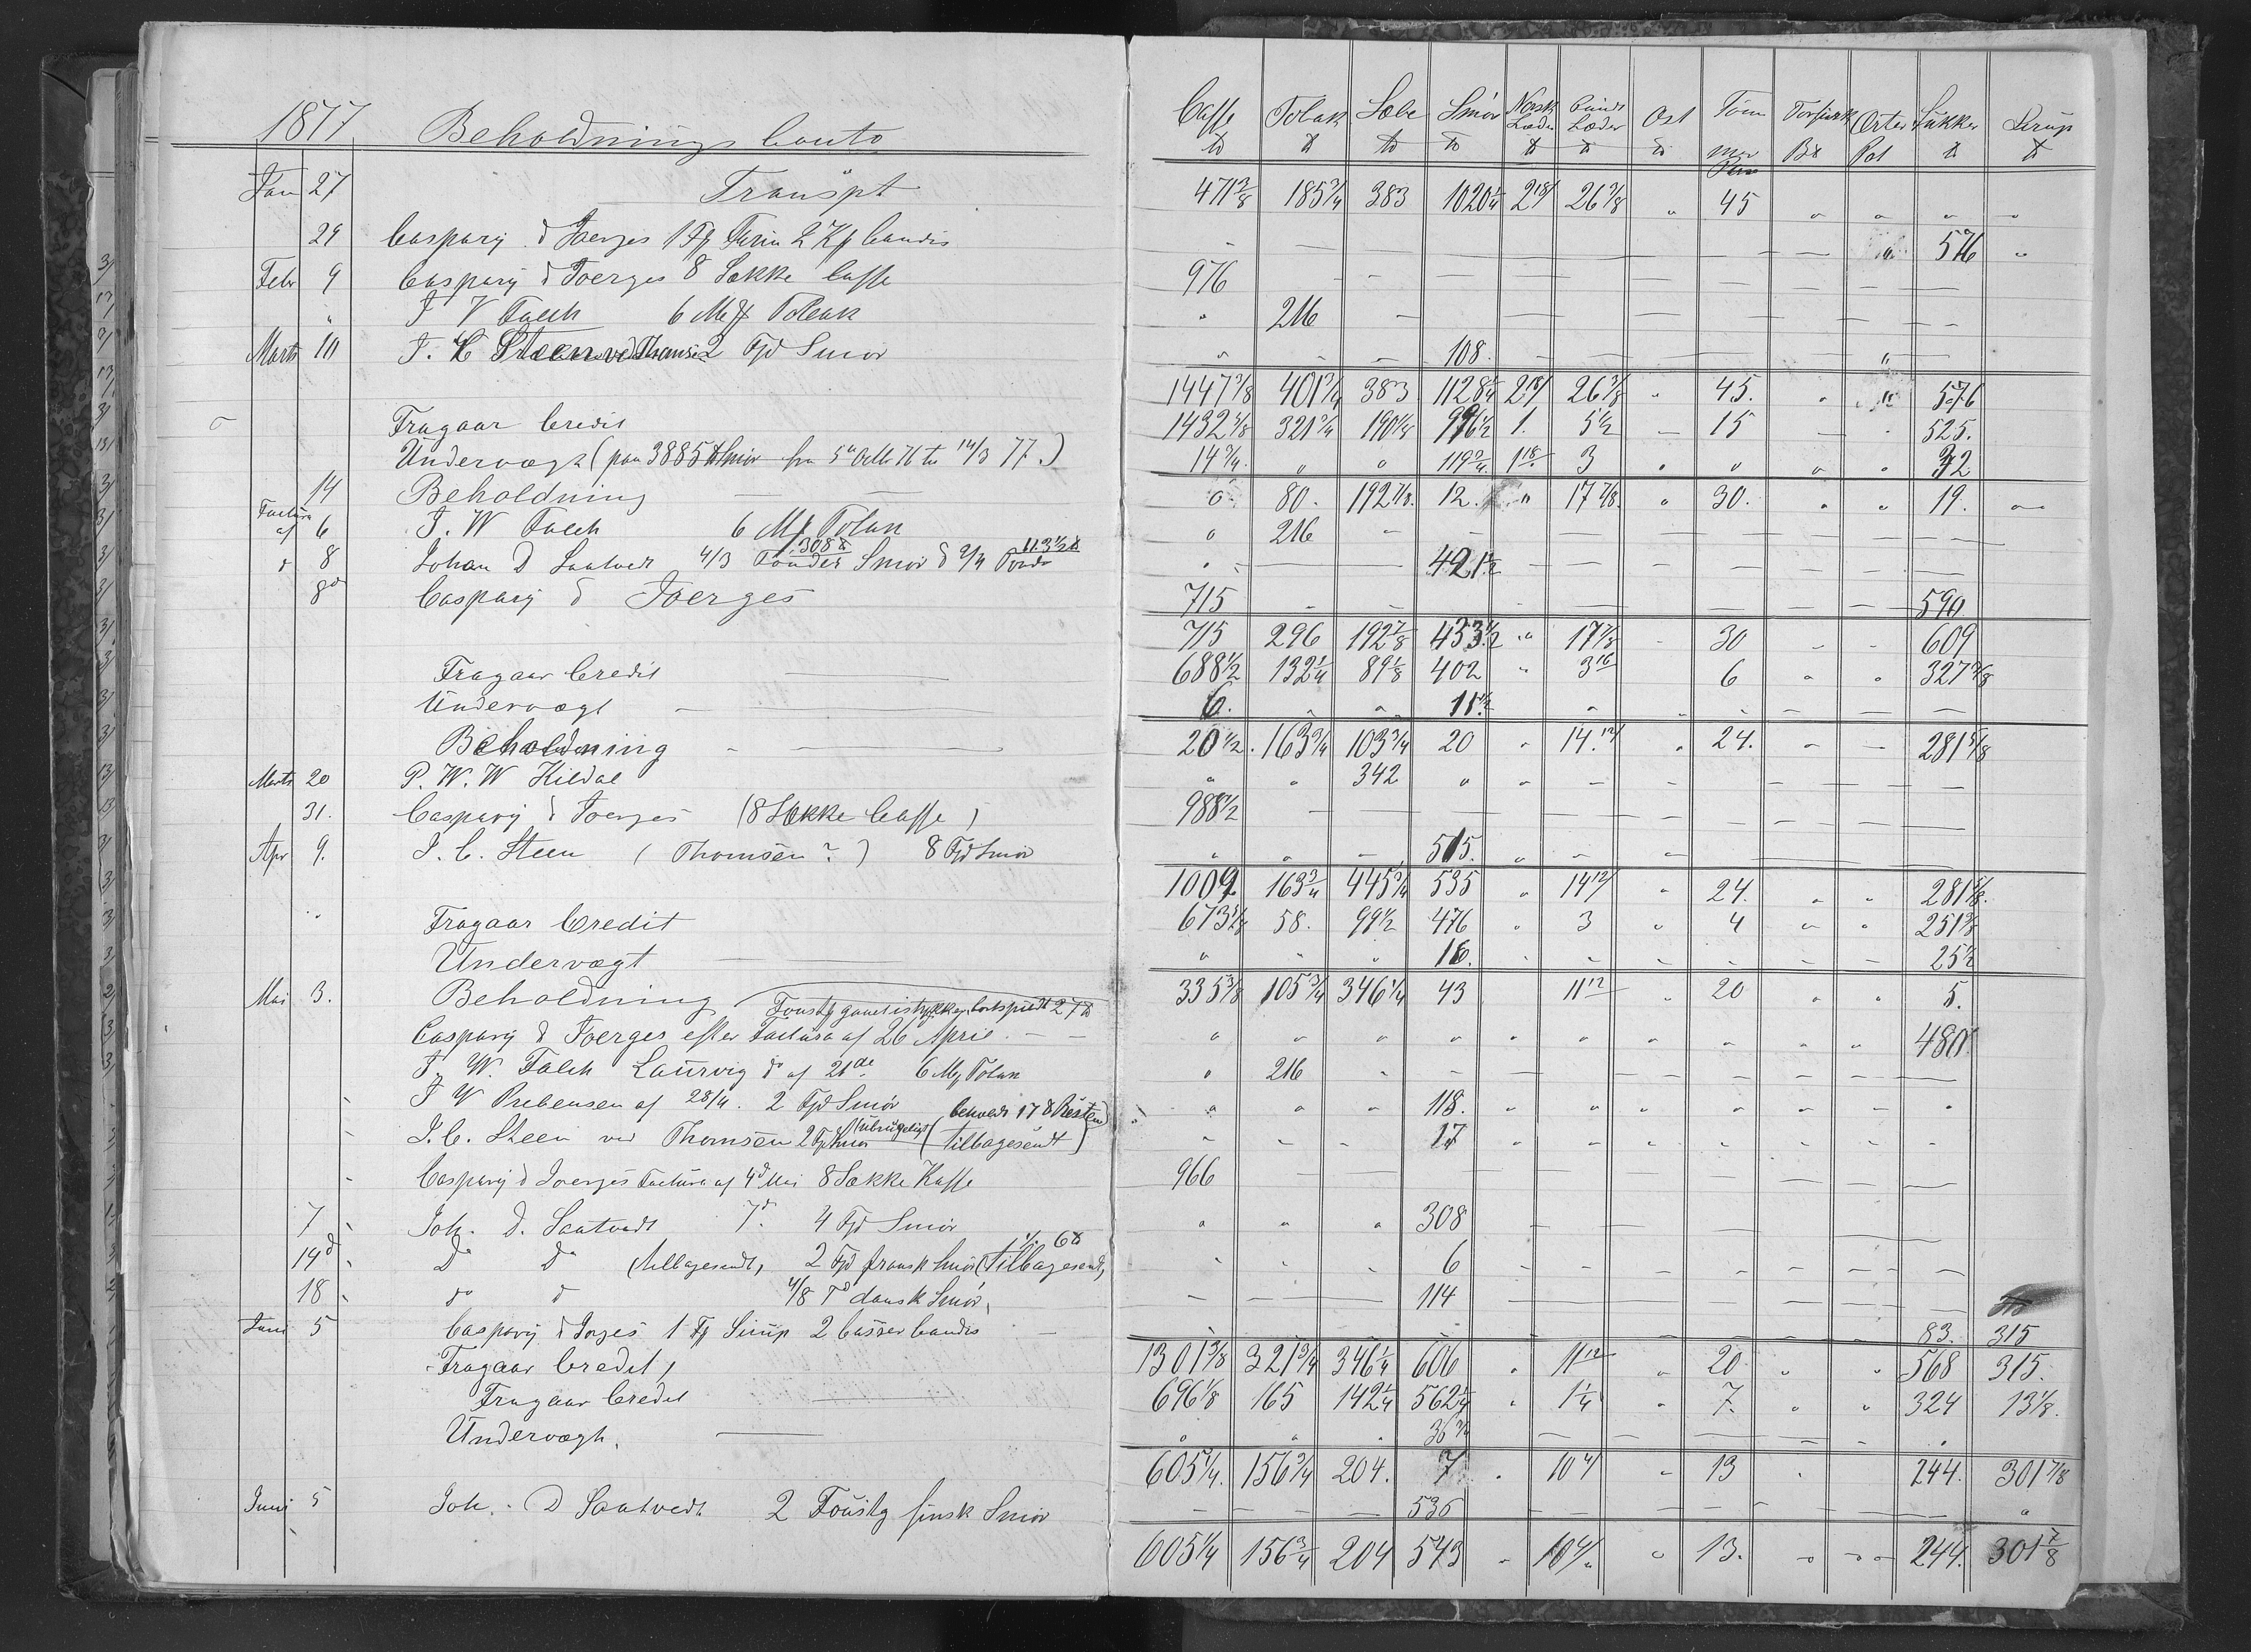 1877 Beholdnings Conto
Caffe Tobak Sæbe Smör Norsk Læder Læder Ost Sukker Sirup
Jan 27 Transpt 471 3/8 185 3/4 383 1020 1/4 2 18/ 26 7/8 " 45 " " " "
29 Caspary & Joerges 1 Fg Farin 2 Kg Candis 576 "
Febr 9 Caspary & Joerges 8 Sække Caffe 976
" J W Falch 6 Mg Tobak 216
Marts 10 J. C Steen ved Thomsen 2 Fjd Smör 108.
1447 3/8 401 3/4 383 1128 1/4 2 18/ 26 3/8 " 45. " " 576
Fragaar Credit 1432 5/8 321 3/4 190 1/8 996 1/2 1. 5 1/2 15 525.
Undervægt (paa 3885 Smör fra 5 Octbr 76 til 14/3 77.) 14 3/4 " " 119 3/4 1 18 3 " " " " 32
14 Beholdning 0 80. 192 7/8. 12. " 17 7/8. " 30. " " 19.
Factura af 6 J. W Falch 6 Mg Tobak 216
308 113 1/2
" 8 Johan D Saatvedt 4/3 Tönder Smör & 2/4 421 1/2
8 d Caspary & Joerges 715 590
715 296 192 7/8 433 1/2 " 17 7/8 30 609
Fragaar Credit 688 1/2 132 1/4 89 1/8 402 " 3 16 6 " " 327 3/8
Undervægt 6. 11 1/2
Beholdning 20 1/2. 163 3/4 103 3/4 20 " 14. 12/ 24. 281 5/8
Marts 20 P. W. W Kildal 342
31. Caspary & Joerges (8 Sække Caffe) 988 1/2
Apr 9. J. C. Steen (Thomsen?) 8 Fjd Smör 515.
1009 163 3/4 445 3/4 535 " 14 12/ 24. " " 281 5/8.
Fragaar Credit 673 5/8 58. 99 1/2 476 " 3 " 4 " " 251 1/8
Undervægt 16. 25 1/2
Mai 3. Beholdning 335 3/8 105 3/4 346 1/4 43 11 12 20 " " 5.
Caspary & Joerges efter Factura af 26 April 480
J. W. Falch Laurvig do af 21de 6 Mg Tobak 216
J W Prebensen af 28/4. 2 Fjd Smör 118.
beholdt 17
J. C. Steen ved Thomsen 2 Fjd Smör (tilbagesendt) 17
Caspary & Joerges Factura af 4d Mai 8 Sække Kaffe 966
7 Joh. D. Saatvedt 7d. 4 Fjd Smör 308
14d Do Do (tilbagesendt, 2 Fjd fransk Smör (tilbagesendt, 6
18 do d 4/8 Td dansk Smör, 114
Juni 5 Caspary & Jorges 1 Fg Sirup 2 Casser Candis 83. 315
Fragaar Credit, 1301 3/8 321 3/4 346 1/4 606 " 11 12 " 20 " " 568 315.
Fragaar Credit 696 1/8 165 142 1/4 562 1/4 " 1 1/4 " 7. " " 324 13 1/8.
Undervægt. 36 3/4
605 1/4. 156 3/4 204. 7 10 4/ 13 244. 301 7/8
Juni 5 Joh. D Saatvedt 2 Foustg finsk Smör 536
605 1/4 156 3/4 204 543 10 4/ 13. 244. 301 7/8